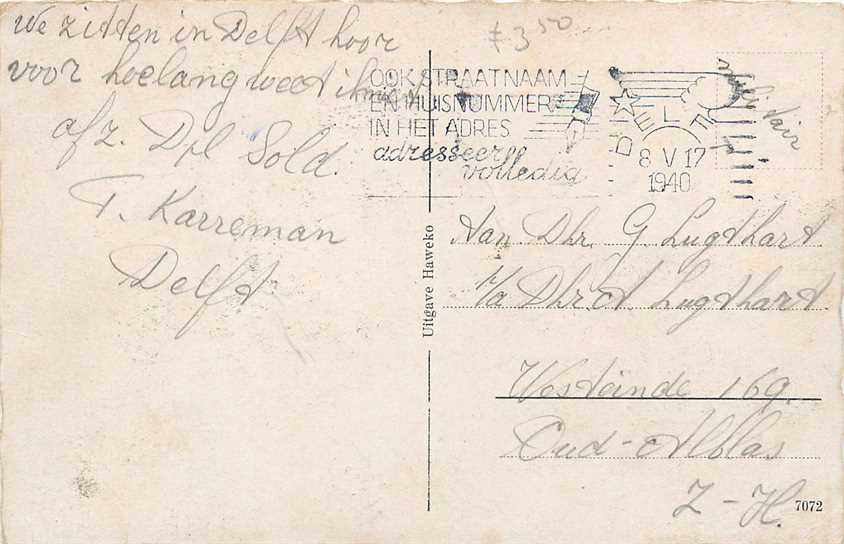 We zitten in Delft hoor
voor hoelang weet ik niet
afz. Dpl Sold.
T. Karreman
Delft
f 3 50
OOK STRAATNAAM
EN HUISNUMMER
IN HET ADRES
adresseer
volledig
DELFT
8 V 17
1940
militair
Uitgave Haweko
Aan Dhr. G. Lugthart
p/a Dhr. A. Lugthart
Westeinde 169.
Oud-Alblas
Z-H.
7072